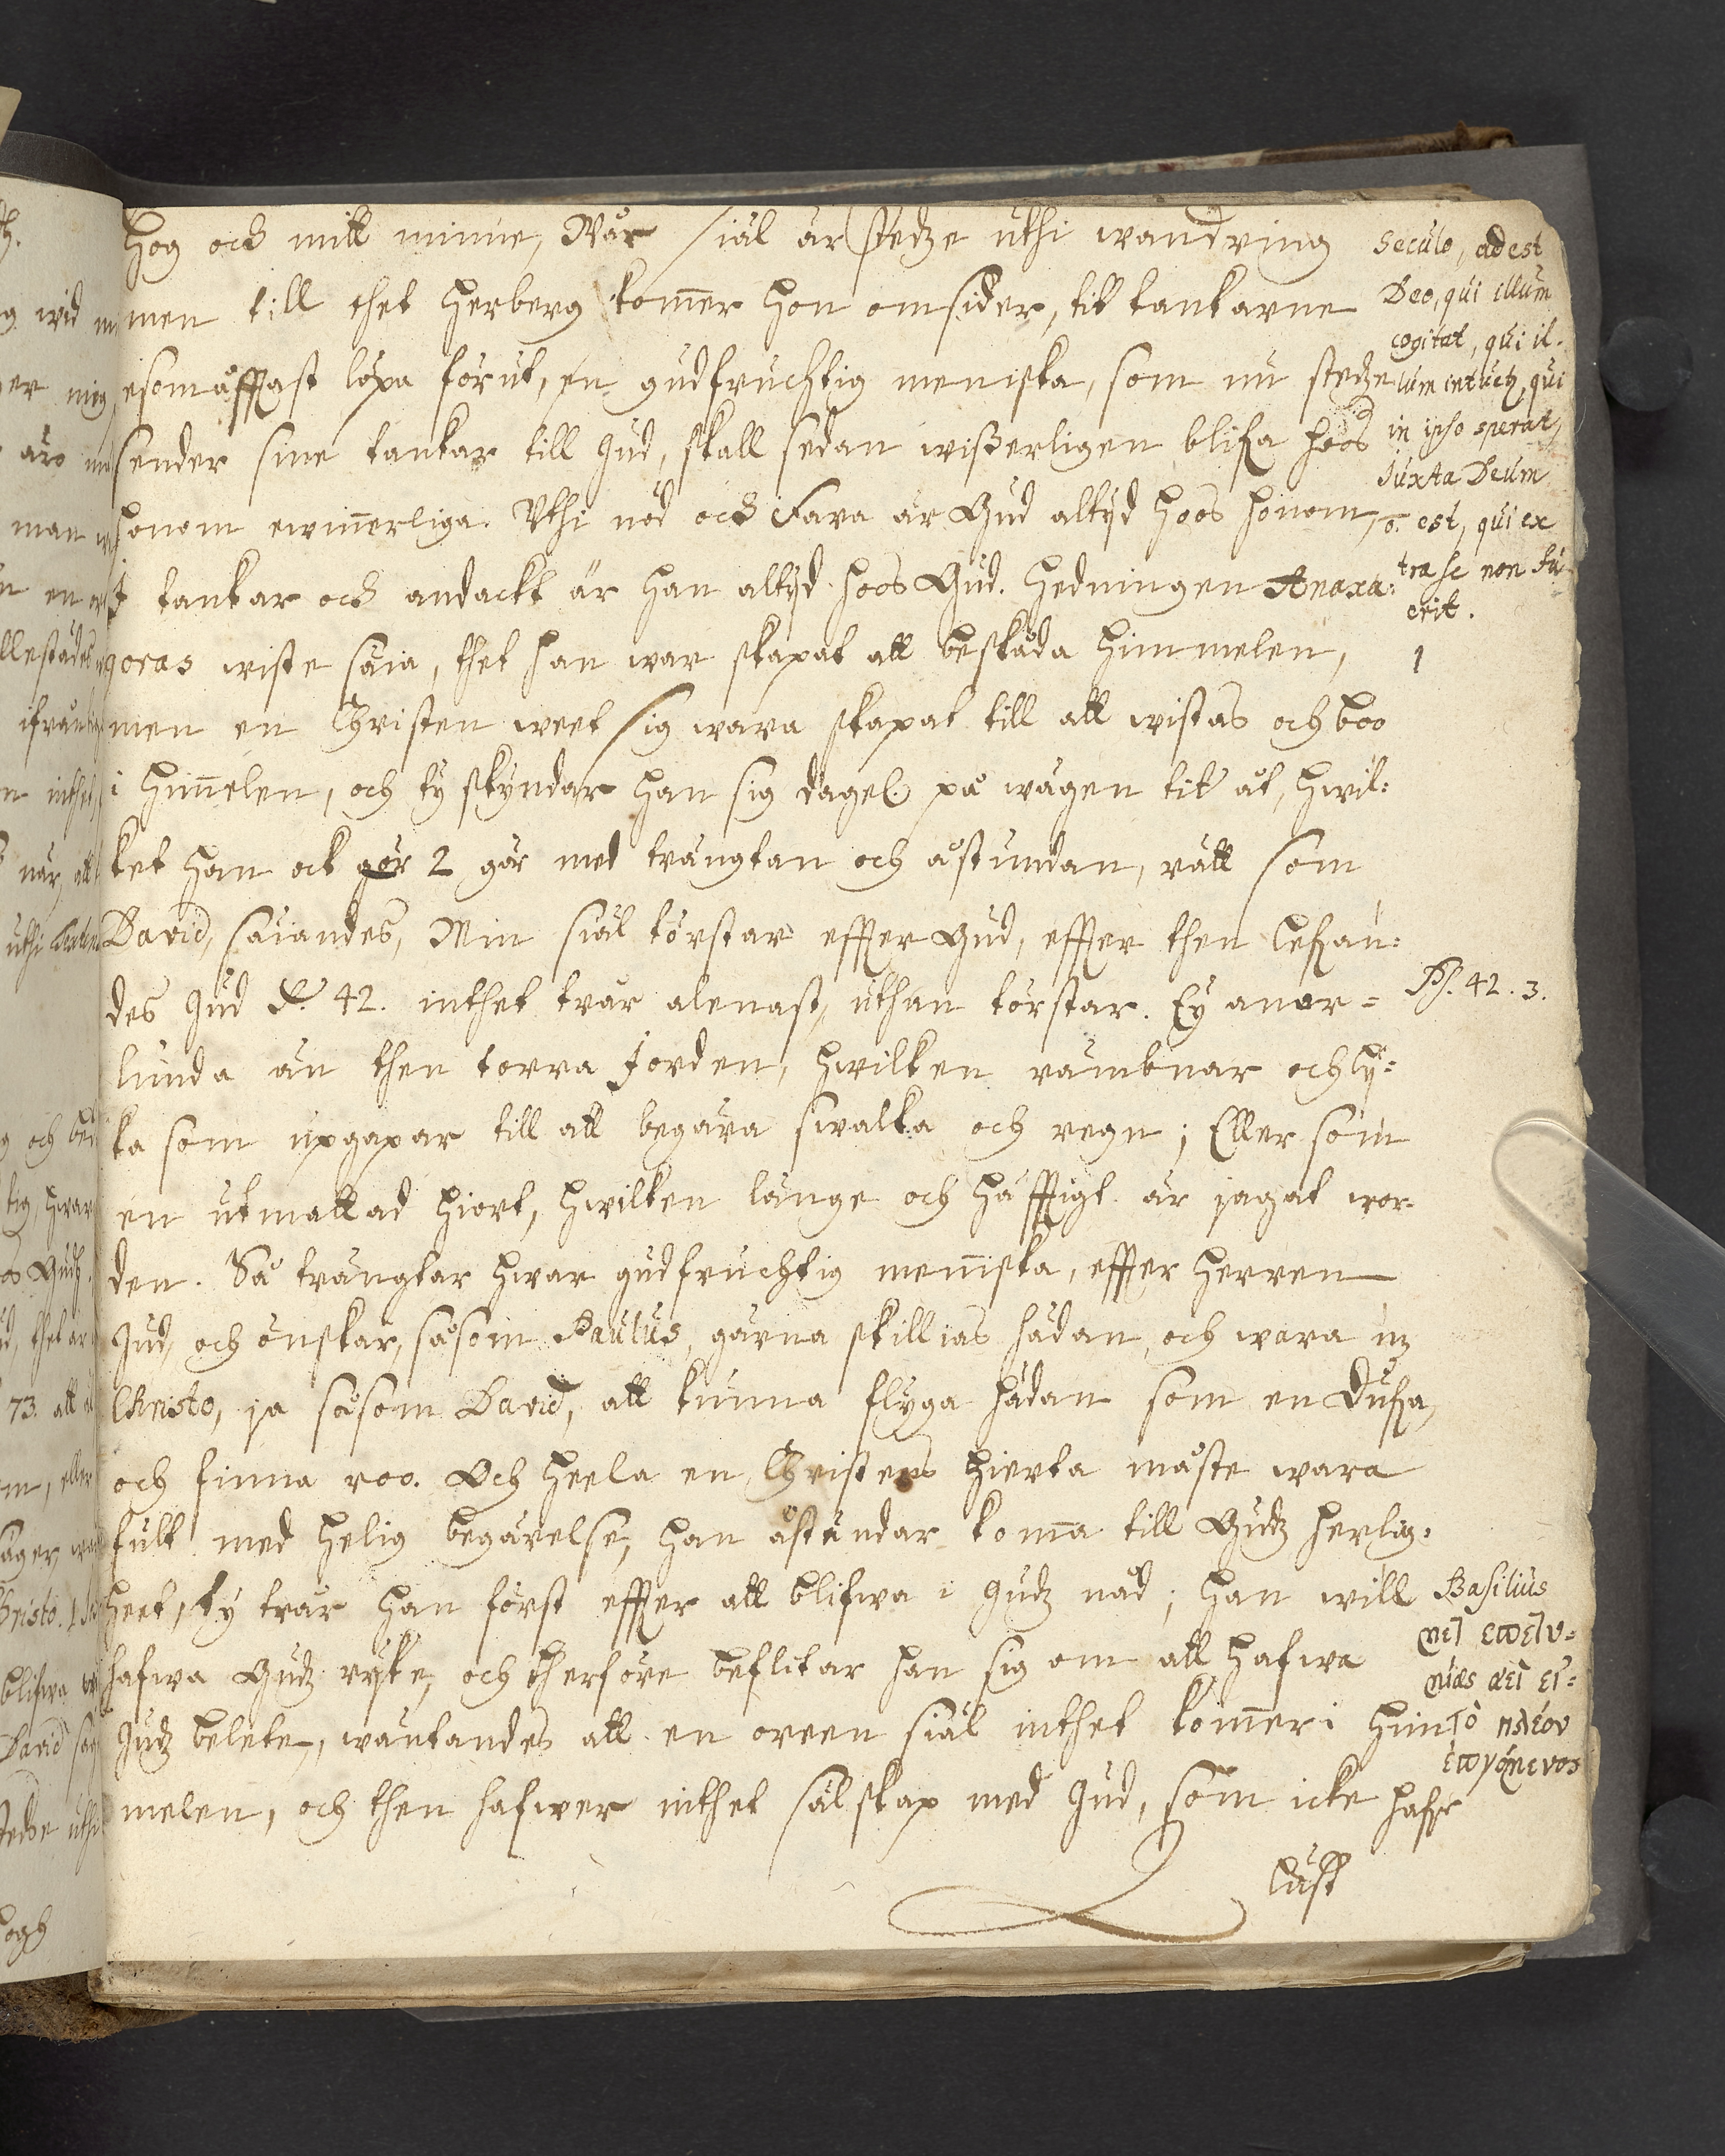 hog och mitt minne, Wår siäl är stedze uthi wandring
men till thet herberg kom̄er hon omsider, tit tankarne
esomåfftast löpa förut, en gudfruchtig meniska, som nu stedze
sender sine tankar till Gud, skall sedan wißerligen blifa hoos
honom ewin̄erliga. Uthi nöd och Fara är Gud altijd hoos honom,
I tankar och andackt är han altijd hoos Gud. Hedningen Anaxa:
goras wiste säia, thet han war skapat att beskåda himmelen,
men en Christen weet sig wara skapat till att wistas och boo
i him̄elen, och ty skyndar han sig dagel. på wägen tit åt, hwil:
ket han ock gör 2 går med trängtan och åstundan, rätt som
David, säiandes, Min siäl törstar effter Gud, effter then lefwan:
des Gud 42. inthet trår alenast, uthan törstar. Ey anor=
lunda än then torra Jorden, hwilken rämbnar och lij:
ka som upgapar till att begära swalka och regn; Eller som
en utmattad hiort, hwilken länge och häfftigt är jagat wor
den. Så trängtar hwar gudfruchtig men̄iska, effter Herren
Gud, och önskar, såsom Paulus, gärna skillias hädan, och wara mz
Christo, ja såsom David, att kunna flyga hädan som en Dufwa,
och finna roo. Och heela en Christens hierta måste wara
fult med helig begärelse, han åstundar kom̄a till Gudz herlig:
heet, ty trår han först effter att blifwa i Gudz nåd; han will
hafwa Gudz ryke, och therföre beflitar han sig om att hafwa
Gudz belete, wäntandes att en oreen siäl inthet kom̄er i him
melen, och then hafwer inthet sälskap med Gud, som icke hafr
lust
Seculo, adest
Deo, qui illum
cogitat, qui il-
lum intuetz, qui
in ipso sperat,
Juxta Deum
o. est, qui ex
tra se non fu
erit.
1
Ps. 42. 3.
Basilius
μετ' ἐπιθυ=
μίας ἀεὶ εἰ=
τὸ πλέον
ἐπιγόμενος